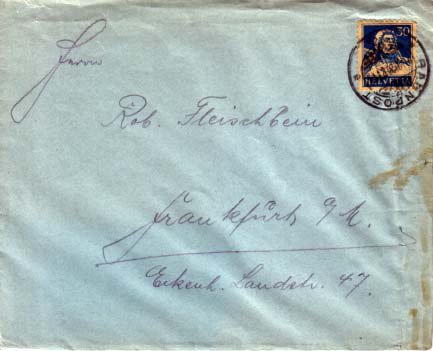 30
HELVETIA
BAHNPOST
Herrn
Rob. Fleischbein
Frankfurt a/M.
Eckenh. Landstr. 47.